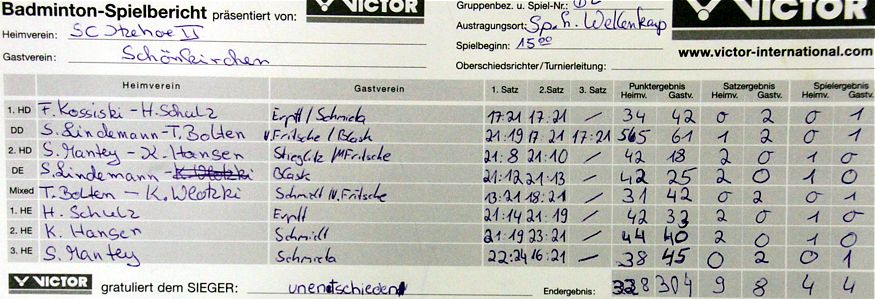 Badminton-Spielbericht präsentiert von: VICTOR
Gruppenbez. u. Spiel-Nr.:
VICTOR
Heimverein: SC Itzehoe II
Austragungsort: Sp.h. Wellenkamp
Spielbeginn: 15 00
www.victor-international.com
Gastverein: Schönkirchen
Oberschiedsrichter/Turnierleitung:
Heimverein Gastverein 1. Satz 2.Satz 3. Satz Punktergebnis Satzergebnis Spielergebnis
Heimv. Gastv. Heimv. Gastv. Heimv. Gastv.
1. HD F. Kossiski - H. Schulz Erptt / Schmiela 17:21 17:21 / 34 42 0 2 0 1
DD S. Lindemann - T. Bolten V. Fritsche / Blask 21:19 17:21 17:21 61 1 2 0 1
2. HD S. Mantey - K. Hansen Stieglitz / M Fritsche 21:8 21:10 / 42 18 2 0 1 0
DE S. Lindemann Blask 21:12 21:13 / 42 25 2 0 1 0
Mixed T. Bolten - K. Wlotzki Schmidt / V. Fritsche 13:21 18:21 / 31 42 0 2 0 1
1. HE H. Schulz Erptt 21:14 21:19 / 42 33 2 0 1 0
2. HE K. Hansen Schmidt 21:19 23:21 / 44 40 2 0 1 0
3. HE S. Mantey Schmiela 22:24 16:21 / 38 45 0 2 0 1
VICTOR gratuliert dem SIEGER: unentschieden Endergebnis: 328 304 9 8 4 4